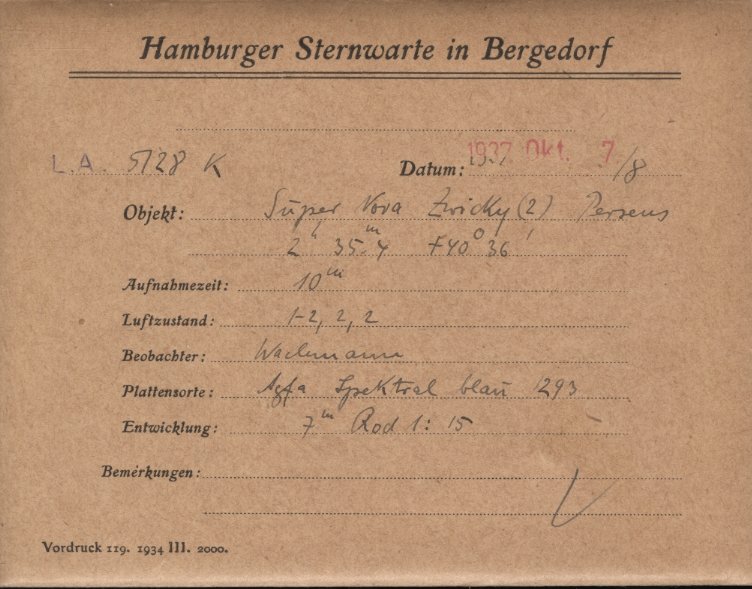 Hamburger Sternwarte in Bergedorf
L.A. 5128 K Datum: 1937 Okt. 7./8
Objekt: Super Nova Zwicky (2) Perseus
2h 35.m4 +40° 36'
Aufnahmezeit: 10m
Luftzustand: 1-2, 2, 2
Beobachter: Wachmann
Plattensorte: Agfa Spektral blau 1293
Entwicklung: 7m Rod 1:15
Bemerkungen:
Vordruck 119. 1934 III. 2000.